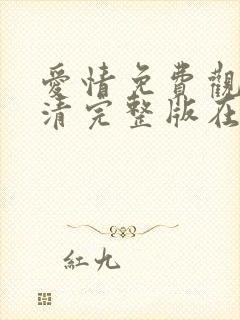 愛情免費觀
清完整版在
紅九